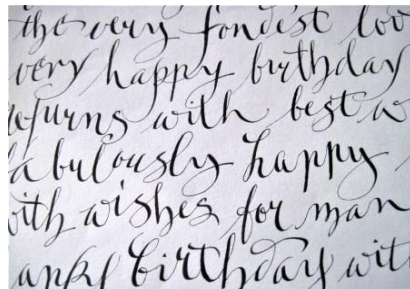 the very fondest lov
very happy birthday
eturns with best w
fabulously happy
with wishes for man
appy birthday wit